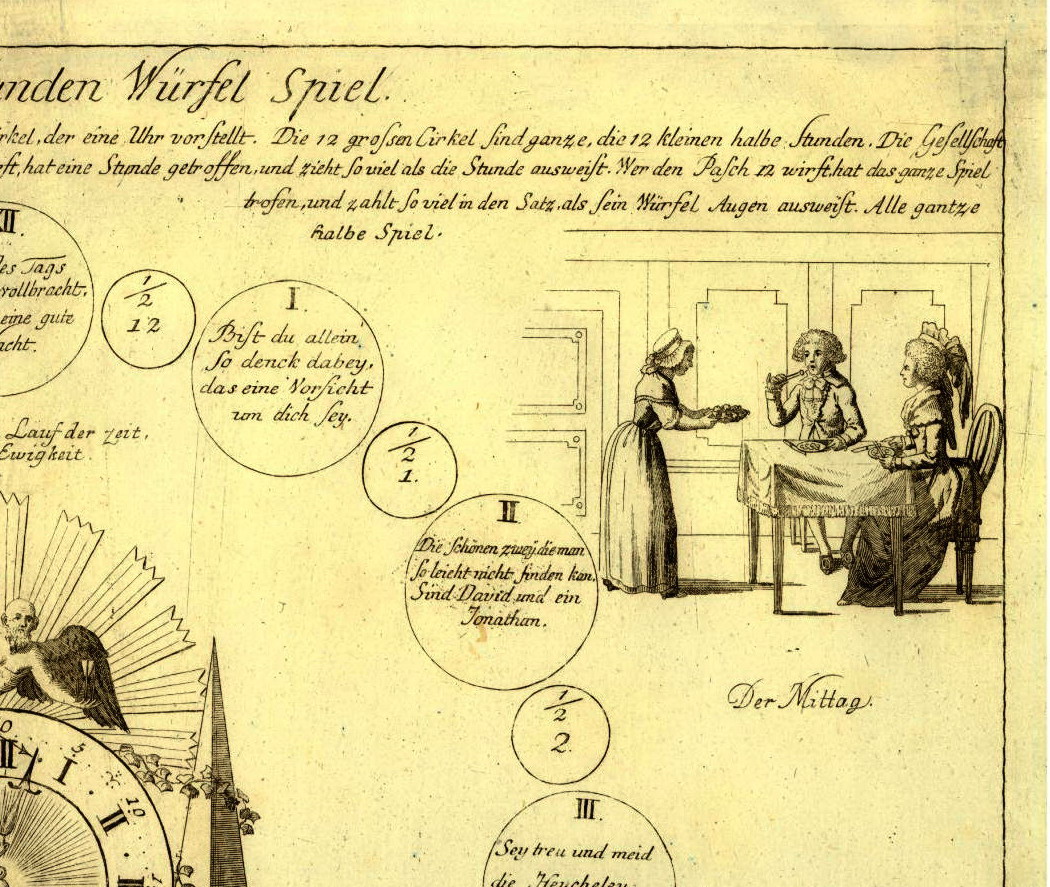 unden Würfel Spiel.
irkel, der eine Uhr vorstellt. Die 12 grossen Cirkel sind ganze, die 12 kleinen halbe Stunden. Die Gesellschaft
eft, hat eine Stunde getroffen, und zieht so viel als die Stunde ausweist. Wer den Pasch 12 wirft, hat das ganze Spiel
trofen, und zahlt so viel in den Satz, als sein Würfel Augen ausweist. Alle gantze
halbe Spiel.
XII.
des Tags
vollbracht,
eine gute
acht.
1/2
12
I.
Bist du allein,
so denck dabey,
das eine Vorsicht
um dich sey.
Lauf der zeit,
Ewigkeit.
1/2
1.
II
Die schönen zwey, die man
so leicht nicht finden kan,
Sind David und ein
Jonathan.
Der Mittag.
1/2
2.
III.
Sey treu und meid
die Heucheley
0
5
10
III
I
II